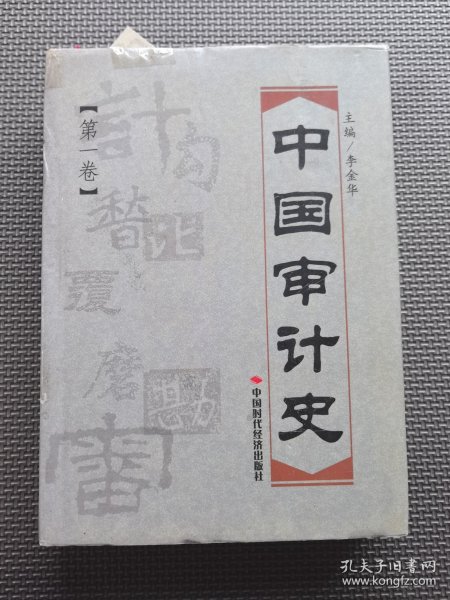 中国审计史
主编/李金华
【第一卷】
中国时代经济出版社
計
稽
覆
磨
審
孔夫子旧书网
www.kongfz.com